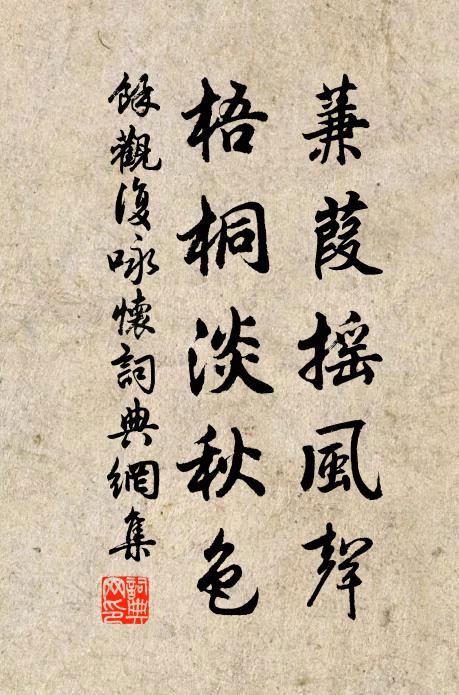 蒹葭摇風聲
梧桐淡秋色
餘觀復咏懷詞典網集
詞典
网印